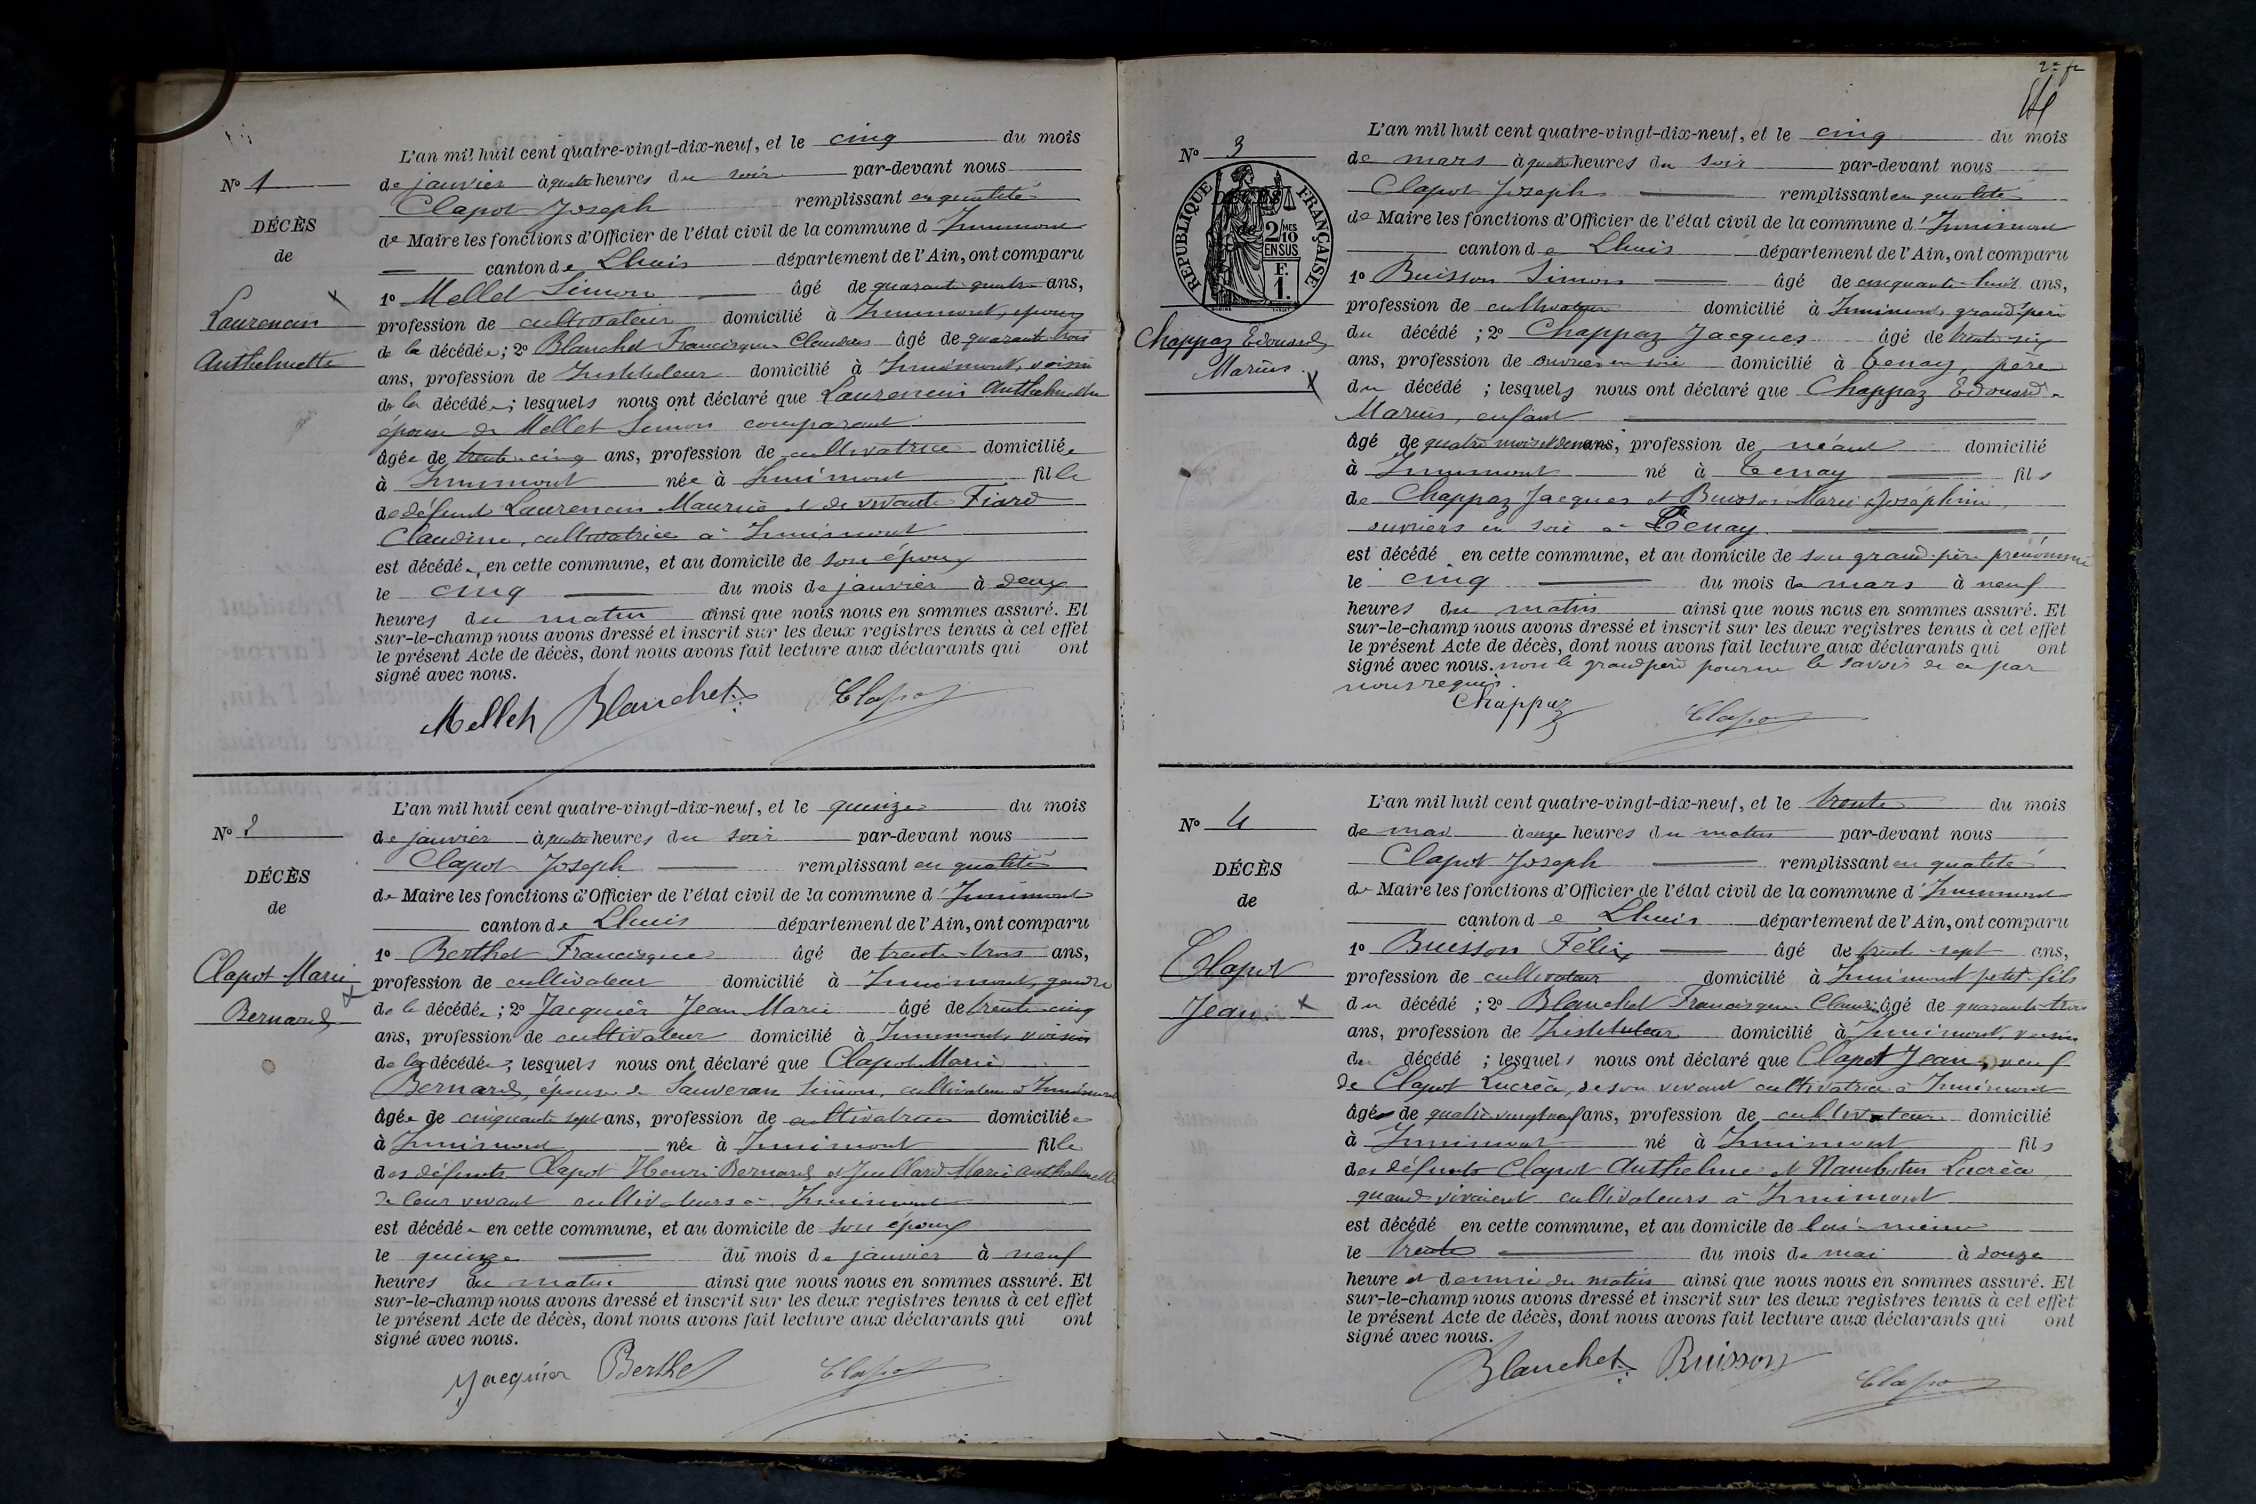 N° 1
DÉCÈS
de
Laurencin
Anthelmette
L'an mil huit cent quatre-vingt-dix-neuf, et le cinq du mois
de janvier à quatre heures du soir par-devant nous
Clapot Joseph remplissant en qualité
de Maire les fonctions d'Officier de l'état civil de la commune d'Innimont
canton de Lhuis département de l'Ain, ont comparu
1° Mellet Simon âgé de quarante quatre ans,
profession de cultivateur domicilié à Innimont, époux
de la décédée; 2° Blanchet Francisque Claudius âgé de quarante trois
ans, profession de Instituteur domicilié à Innimont, voisin
de la décédée; lesquels nous ont déclaré que Laurencin Anthelmette
épouse de Mellet Simon comparant
âgée de trente-cinq ans, profession de cultivatrice domiciliée
à Innimont née à Innimont fille
de défunt Laurencin Maurice et de vivante Fiard
Claudine, cultivatrice à Innimont
est décédée, en cette commune, et au domicile de son époux
le cinq du mois de janvier à deux
heures du matin ainsi que nous nous en sommes assuré. Et
sur-le-champ nous avons dressé et inscrit sur les deux registres tenus à cet effet
le présent Acte de décès, dont nous avons fait lecture aux déclarants qui ont
signé avec nous.
Mellet Blanchet Clapot
N° 2
DÉCÈS
de
Clapot Marie
Bernard
L'an mil huit cent quatre-vingt-dix-neuf, et le quinze du mois
de janvier à quatre heures du soir par-devant nous
Clapot Joseph remplissant en qualité
de Maire les fonctions d'Officier de l'état civil de la commune d'Innimont
canton de Lhuis département de l'Ain, ont comparu
1° Berthet Francisque âgé de trente-trois ans,
profession de cultivateur domicilié à Innimont, gendre
de la décédée; 2° Jacquier Jean Marie âgé de trente-cinq
ans, profession de cultivateur domicilié à Innimont, voisin
de la décédée; lesquels nous ont déclaré que Clapot Marie
Bernard, épouse de Sauveran Simon, cultivateur à Innimont
âgée de cinquante sept ans, profession de cultivatrice domiciliée
à Innimont née à Innimont fille
des défunts Clapot Henri Bernard et Juillard Marie Anthelmette
de leur vivant cultivateurs à Innimont
est décédée en cette commune, et au domicile de son époux
le quinze du mois de janvier à neuf
heures du matin ainsi que nous nous en sommes assuré. Et
sur-le-champ nous avons dressé et inscrit sur les deux registres tenus à cet effet
le présent Acte de décès, dont nous avons fait lecture aux déclarants qui ont
signé avec nous.
Jacquier Berthet Clapot
N° 3
RÉPUBLIQUE FRANÇAISE
2/10 MES
EN SUS
F.
1.
Chappaz Edouard
Marius
L'an mil huit cent quatre-vingt-dix-neuf, et le cinq du mois
de mars à quatre heures du soir par-devant nous
Clapot Joseph remplissant en qualité
de Maire les fonctions d'Officier de l'état civil de la commune d'Innimont
canton de Lhuis département de l'Ain, ont comparu
1° Buisson Simon âgé de cinquante-huit ans,
profession de cultivateur domicilié à Innimont, grand-père
du décédé; 2° Chappaz Jacques âgé de trente-six
ans, profession de ouvrier en soie domicilié à Tenay, père
du décédé; lesquels nous ont déclaré que Chappaz Edouard
Marius, enfant
âgé de quatre mois et demi ans, profession de néant domicilié
à Innimont né à Tenay fils
de Chappaz Jacques et Buisson Marie Joséphine,
ouvriers en soie à Tenay
est décédé en cette commune, et au domicile de son grand-père prénommé
le cinq du mois de mars à neuf
heures du matin ainsi que nous nous en sommes assuré. Et
sur-le-champ nous avons dressé et inscrit sur les deux registres tenus à cet effet
le présent Acte de décès, dont nous avons fait lecture aux déclarants qui ont
signé avec nous. non le grand père pour ne le savoir de ce par
nous requis.
Chappaz Clapot
N° 4
DÉCÈS
de
Clapot
Jean
L'an mil huit cent quatre-vingt-dix-neuf, et le trente du mois
de mai à onze heures du matin par-devant nous
Clapot Joseph remplissant en qualité
de Maire les fonctions d'Officier de l'état civil de la commune d'Innimont
canton de Lhuis département de l'Ain, ont comparu
1° Buisson Félix âgé de trente-sept ans,
profession de cultivateur domicilié à Innimont petit-fils
du décédé; 2° Blanchet Francisque Claudius âgé de quarante-trois
ans, profession de Instituteur domicilié à Innimont, voisin
du décédé; lesquels nous ont déclaré que Clapot Jean, veuf
de Clapot Lucrèce, de son vivant cultivatrice à Innimont
âgé de quatre vingt neuf ans, profession de cultivateur domicilié
à Innimont né à Innimont fils
des défunts Clapot Anthelme et Nambotin Lucrèce
quand vivaient cultivateurs à Innimont
est décédé en cette commune, et au domicile de lui-même
le trente du mois de mai à douze
heure et demie du matin ainsi que nous nous en sommes assuré. Et
sur-le-champ nous avons dressé et inscrit sur les deux registres tenus à cet effet
le présent Acte de décès, dont nous avons fait lecture aux déclarants qui ont
signé avec nous.
Blanchet Buisson Clapot